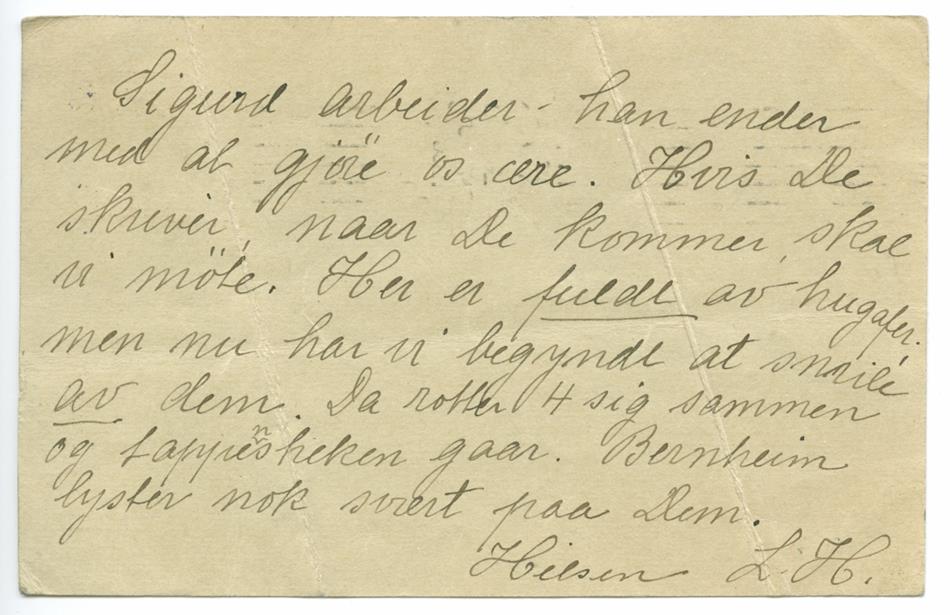 Sigurd arbeider - han ender
med at gjöre os ære. Hvis De
skriver, naar De kommer, skal
vi möte. Her er fuldt av hugafer.
men nu har vi begyndt at smile
av dem. Da rotter 4 sig sammen
og gaar. Bernheim
lyster nok svært paa Dem.
Hilsen L. H.